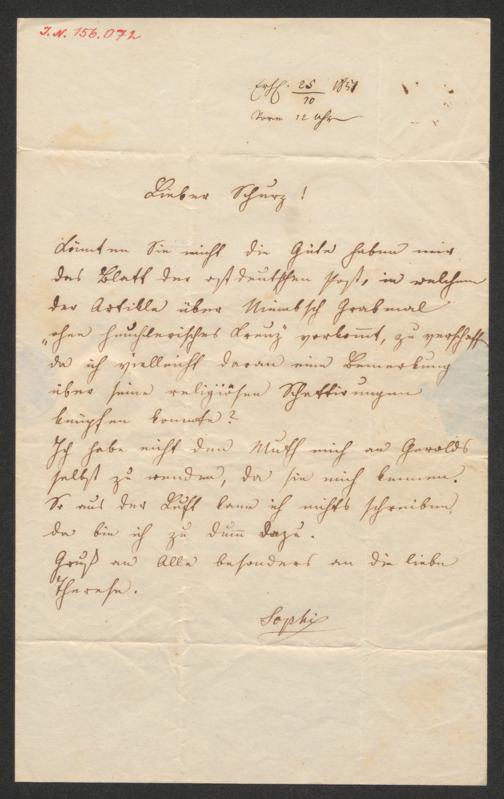 I.N. 156.072
Erh. 25/10 1851
Vorm 12 Uhr
Lieber Schurz!
Könnten Sie nicht die Güte haben mir
das Blatt der ostdeutschen Post, in welchem
der Artikle über Niembsch Grabmal
„ohne heuchlerisches Kreuz" vorkommt, zu verschaffen
da ich vielleicht daran eine Bemerkung
über seine religiösen Schattirungen
knüpfen konnte?
Ich habe nicht den Muth mich an Gerolds
selbst zu wenden, da sie mich kennen.
So aus der Luft kann ich nichts schreiben,
da bin ich zu dum̄ dazu.
Gruß an Alle besonders an die liebe
Therese.
Sophie